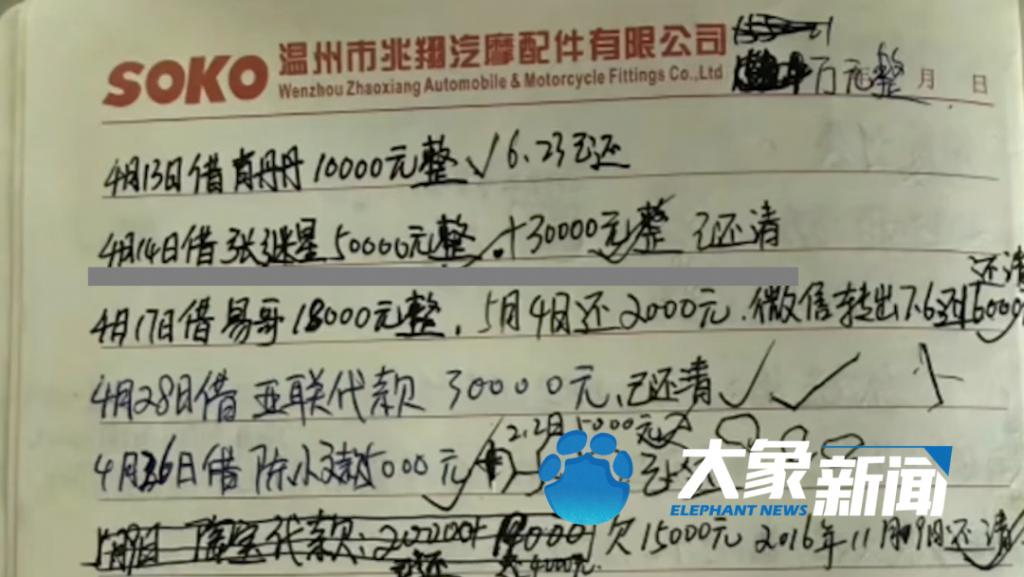 SOKO 温州市兆翔汽摩配件有限公司
Wenzhou Zhaoxiang Automobile & Motorcycle Fittings Co.,Ltd
万元整 月 日
4月13日借肖丹丹10000元整√6.23已还
4月14日借张继星50000元整.+30000元整 已还清
还清
4月17日借易哥18000元整,5月4日还2000元.微信转出7.6还16000
4月28日借亚联代款 30000元,已还清√√
2.2日5000元
4月26日借陈小 5000元
大象新闻
ELEPHANT NEWS
代款: 欠15000元 2016年11月9日还清
欠4000元